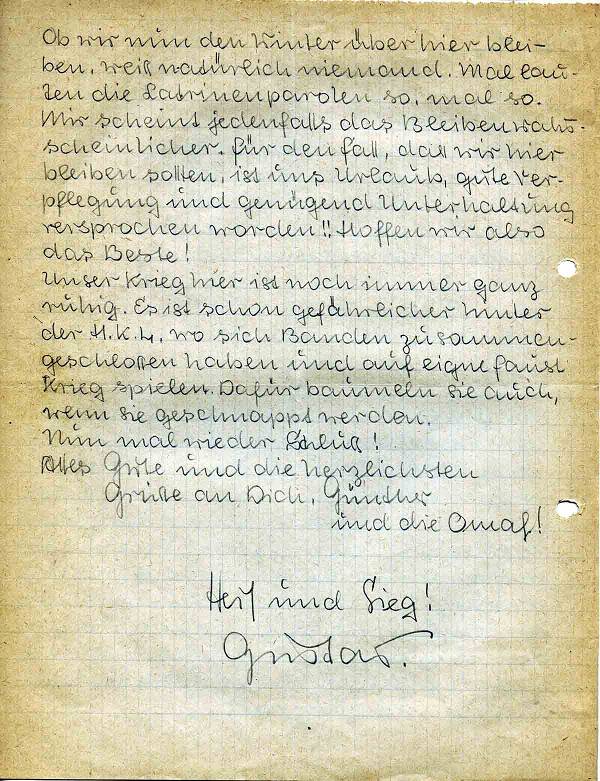 Ob wir nun den Winter über hier blei-
ben, weiß natürlich niemand. Mal lau-
ten die Latrinenparolen so, mal so.
Mir scheint jedenfalls das Bleiben wahr-
scheinlicher. Für den Fall, daß wir hier
bleiben sollten, ist uns Urlaub, gute Ver-
pflegung und genügend Unterhaltung
versprochen worden!! Hoffen wir also
das Beste!
Unser Krieg hier ist noch immer ganz
ruhig. Es ist schon gefährlicher hinter
der H.K.L., wo sich Banden zusammen-
geschloßen haben und auf eigne Faust
Krieg spielen. Dafür baumeln sie auch,
wenn sie geschnappt werden.
Nun mal wieder Schluß!
Alles Gute und die herzlichsten
Grüße an Dich, Günther
und die Omas!
Heil und Sieg!
Gustav.